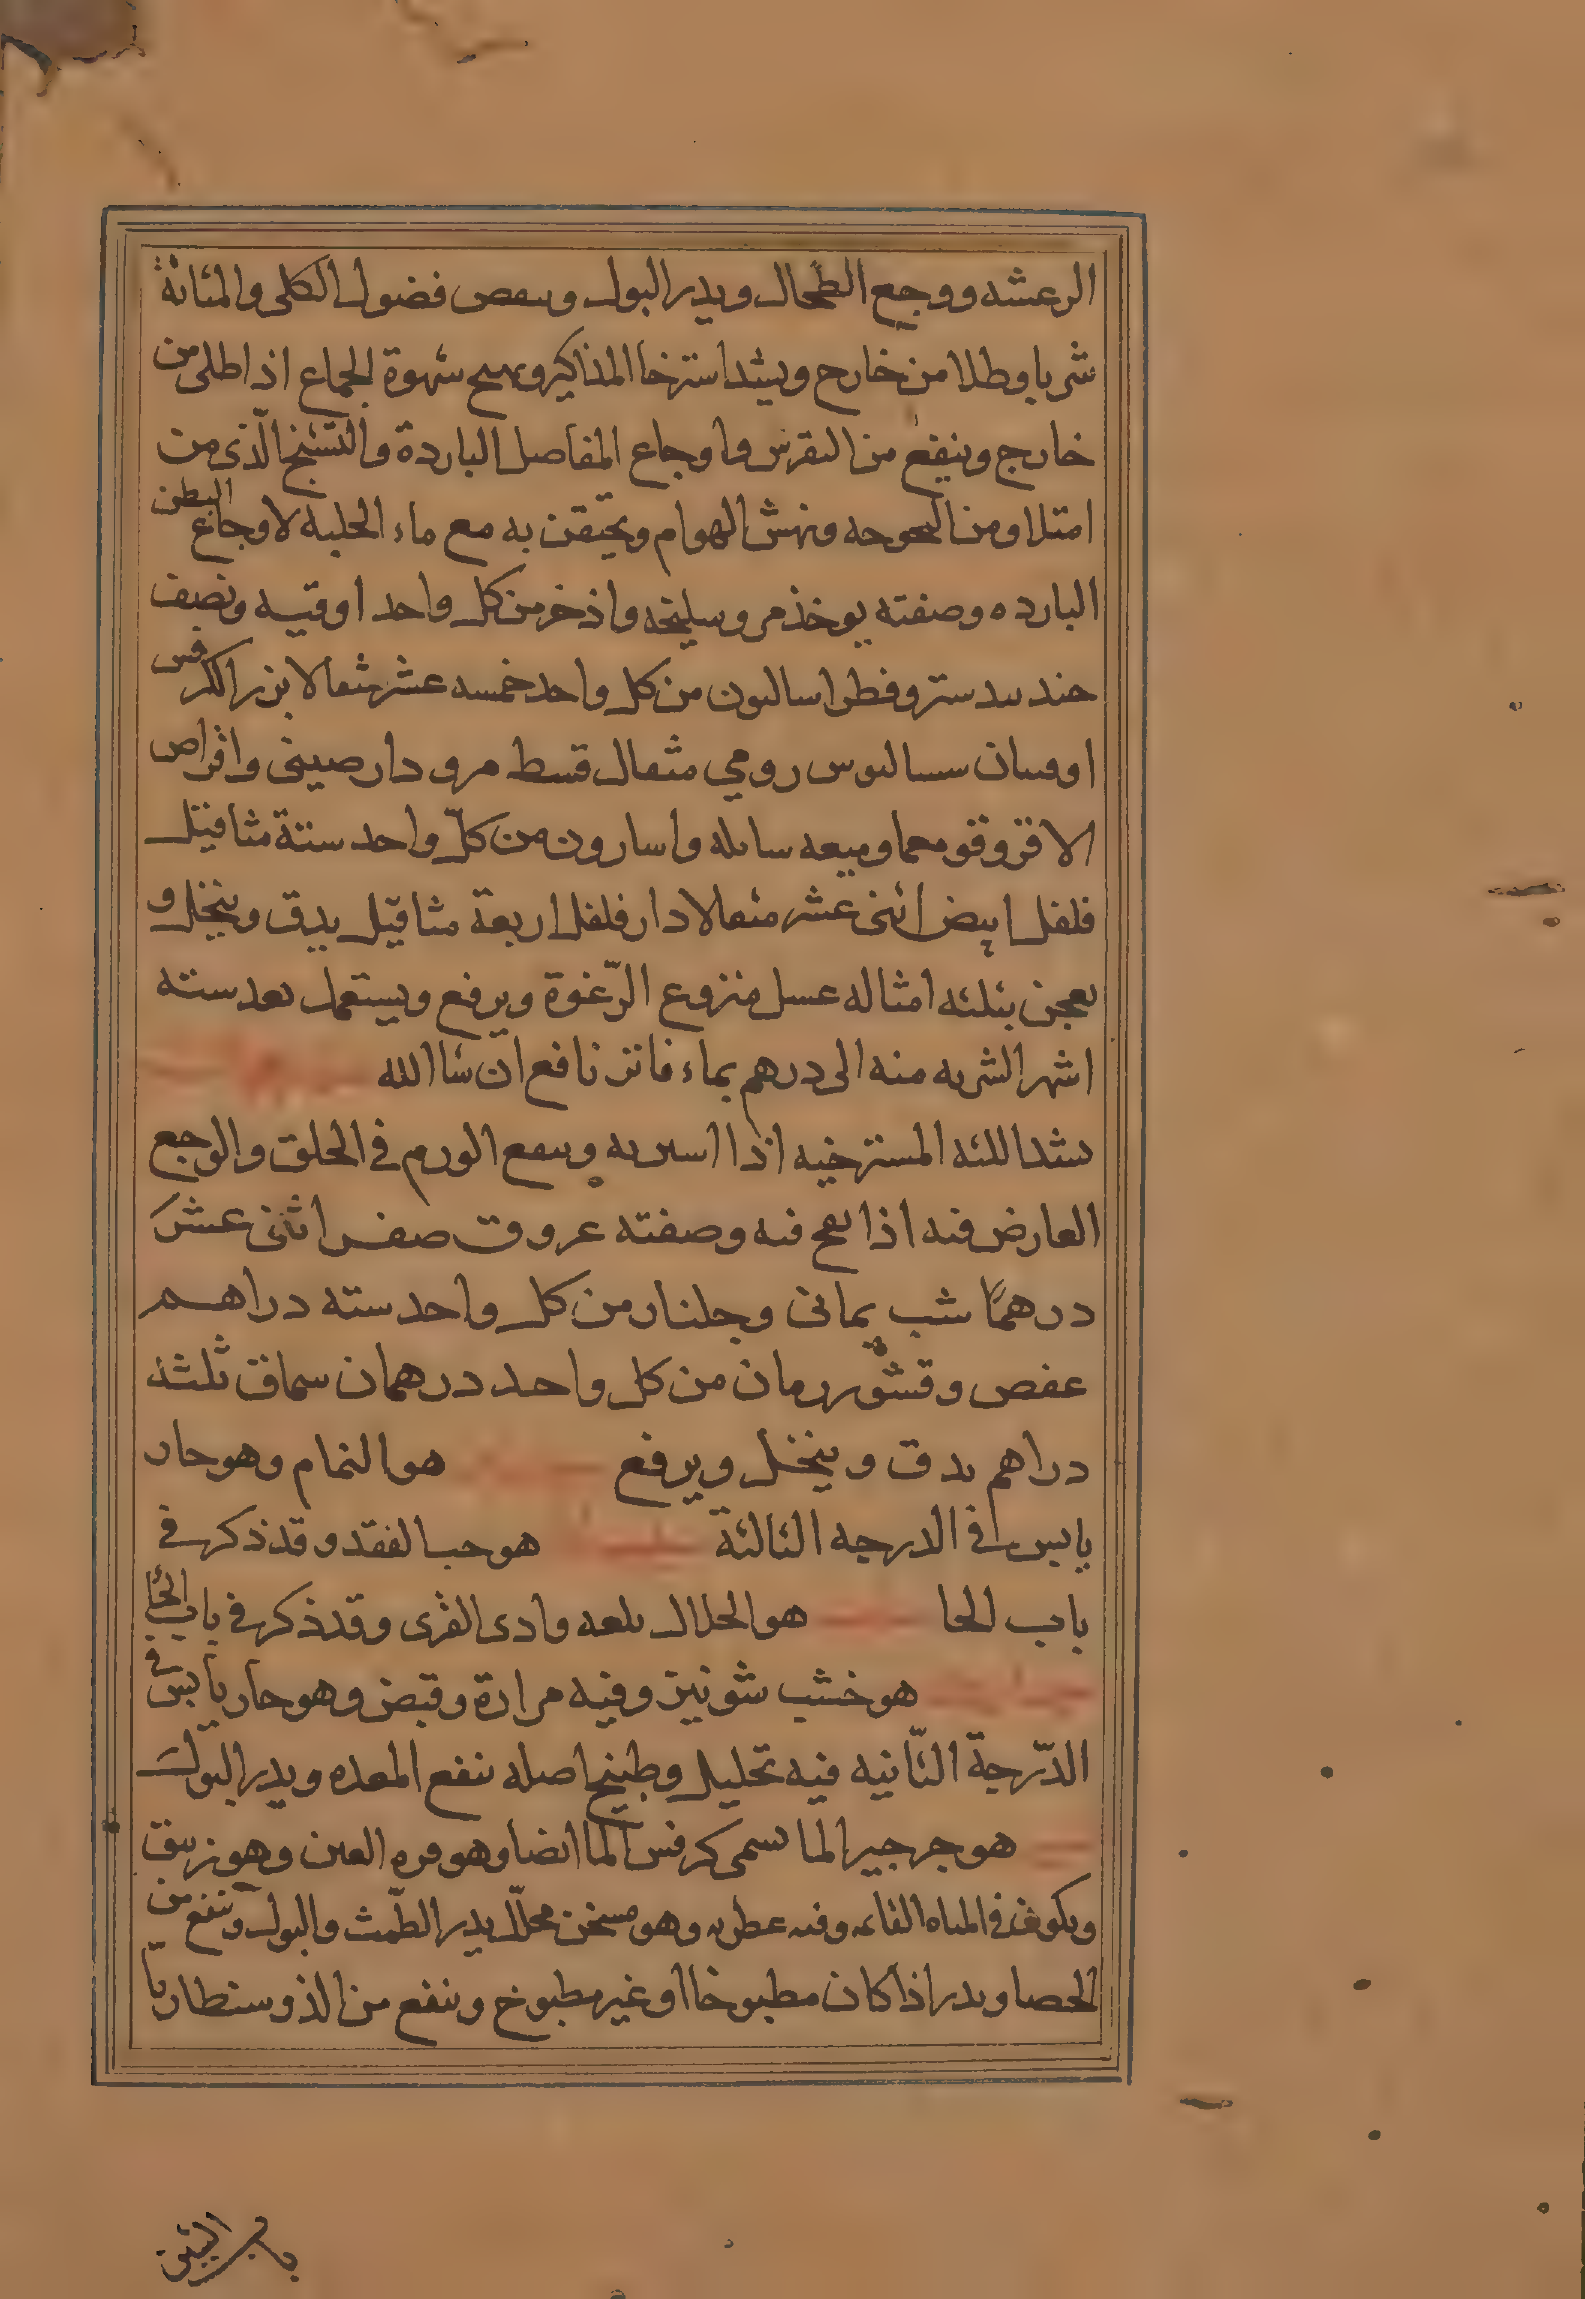 الرعشه ووجع الطحال ويدر البول وينقص فضول الكلى والمثانة
شربا وطلا من خارج ويشد استرخا المذاكير ويهيج شهوة الجماع اذا طلى من
خارج وينفع من النقرس واوجاع المفاصل الباردة والتشنج الذى من
امتلا ومن البحوحه ونهش الهوام ويحتقن به مع ماء الحلبه لاوجاع البطن
البارده وصفته يوخذ مر وسليخه واذخر من كل واحد اوقيه ونصف
جندبيدستر وفطراساليون من كل واحد خمسه عشر مثقالا بزر الكرفس
اوقيتان سساليوس رومي مثقال قسط مر ودارصينى واقراص
الاقروقومعما وميعه سائله واسارون من كلّ واحد ستة مثاقيل
فلفل ابيض اثنى عشر مثقالا دار فلفل اربعة مثاقيل يدق وينخل و
يعجن بثلثه امثاله عسل منزوع الرّغوة ويرفع ويستعمل بعد سته
اشهر الشربه منه الى درهم بماء فاتر نافع ان شا الله
يشد اللثه المسترخيه اذا استن به وينفع الورم فى الحلق والوجع
العارض فيه اذا نفخ فيه وصفته عروق صفر اثنى عشر
درهمًا شب يمانى وجلنار من كل واحد سته دراهم
عفص وقشور رمان من كل واحد درهمان سماق ثلثه
دراهم يدق وينخل ويرفع هو النمام وهو حار
يابس فى الدرجه الثالثة هو حب الفقد وقد ذكر فى
باب الحا هو الخلال بلغه وادى القرى وقد ذكر فى باب الخا
هو خشب شونيز وفيه مرارة وقبض وهو حار يابس فى
الدّرجة الثّانيه فيه تحليل وطبيخ اصله ينفع المعده ويدر البول
هو جرجير الما يسمى كرفس الما ايضا وهو قره العين وهو
ويكون فى المياه القائمه وفيه عطريه وهو مسخن محلّل يدر الطّمث والبول وينفع من
الحصا ويدر اذا كان مطبوخا او غير مطبوخ وينفع من الذوسنطاريا